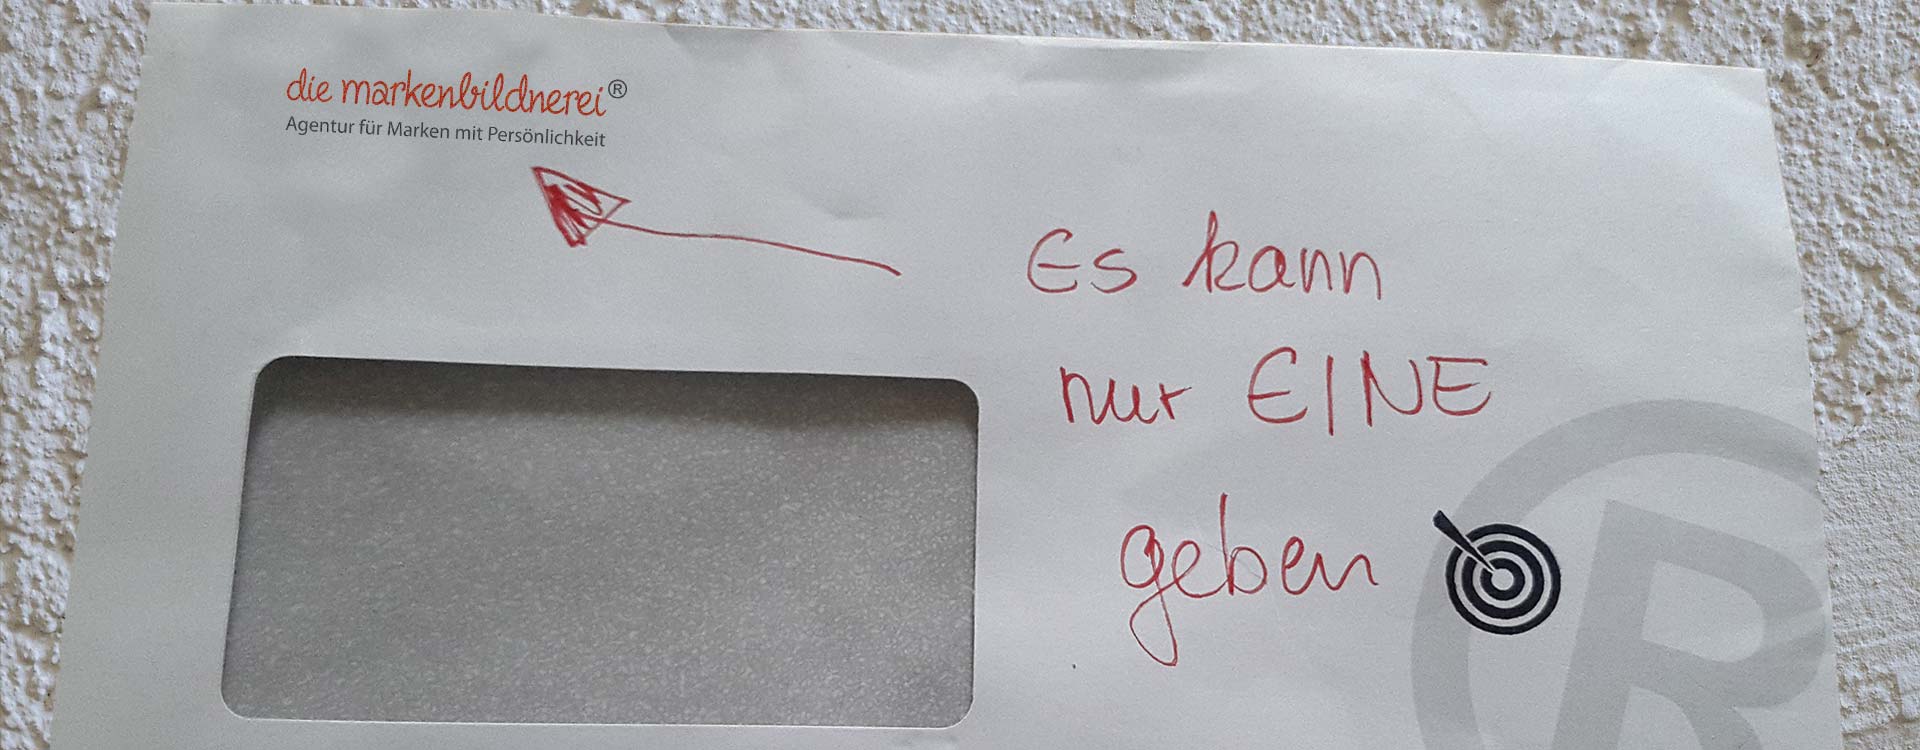 die markenbildnerei®
Agentur für Marken mit Persönlichkeit
Es kann
nur EINE
geben
R